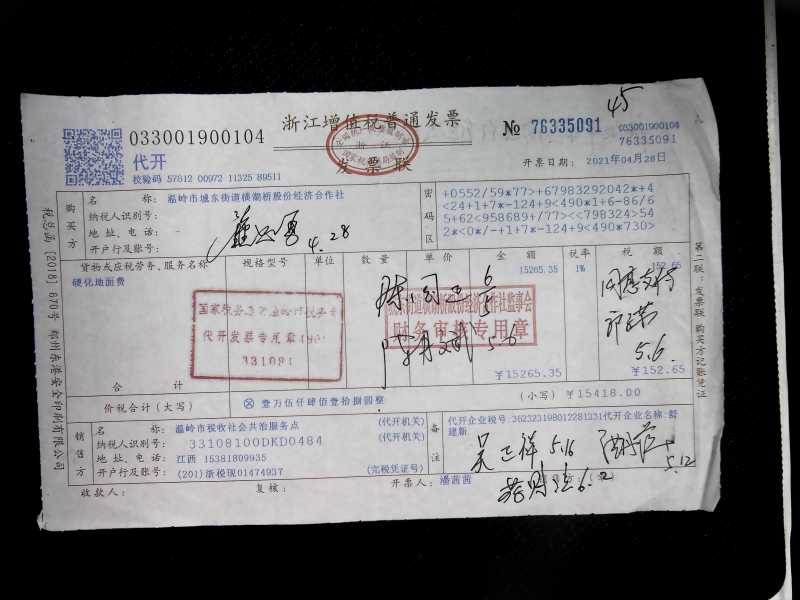 45
浙江增值税普通发票
033001900104
№ 76335091
033001900104
76335091
代开
发票联
校验码 57612 00972 11325 89511
开票日期: 2021年04月28日
购买方
名 称: 温岭市城东街道横湖桥股份经济合作社
纳税人识别号:
地址、电话: -
开户行及账号:
密码区
+0552/59*77>+67983292042*+4
<24+1+7*-124+9<490*1+6-86/6
5+62<958689+/77><<798324>54
2*<0*/-+1+7*-124+9<490*730>
4.28
货物或应税劳务、服务名称 规格型号 单位 数量 单价 金额 税率 税额
硬化地面费
15265.35 1% 152.65
代开发票专用章
331081
财务审核专用章
同意支付
5.6
5.6
合 计
¥15265.35 ¥152.65
价税合计(大写) ⊗ 壹万伍仟肆佰壹拾捌圆整 (小写) ¥15418.00
销售方
名 称: 温岭市税收社会共治服务点 (代开机关)
纳税人识别号: 33108100DKD0484 (代开机关)
地址、电话: 江西 15381809935
开户行及账号: (201)浙税现01474937 (完税凭证号)
备注
代开企业税号:362323198012281331代开企业名称:舒建新
5.16
5.12
6.2
收款人:
复核:
开票人: 潘茜茜
税总函[2018]670号 郑州东港安全印刷有限公司
第二联:发票联 购买方记账凭证